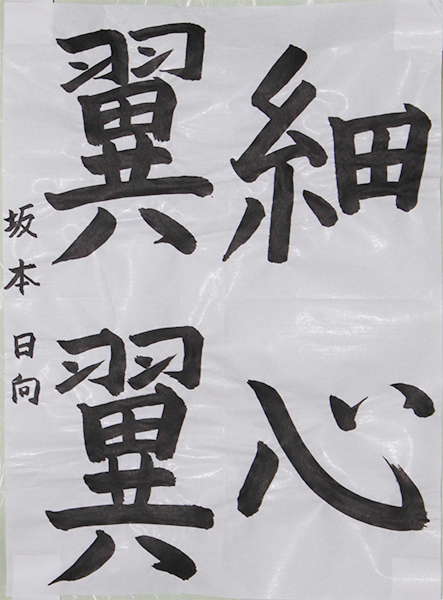 細心
翼翼
坂本 日向